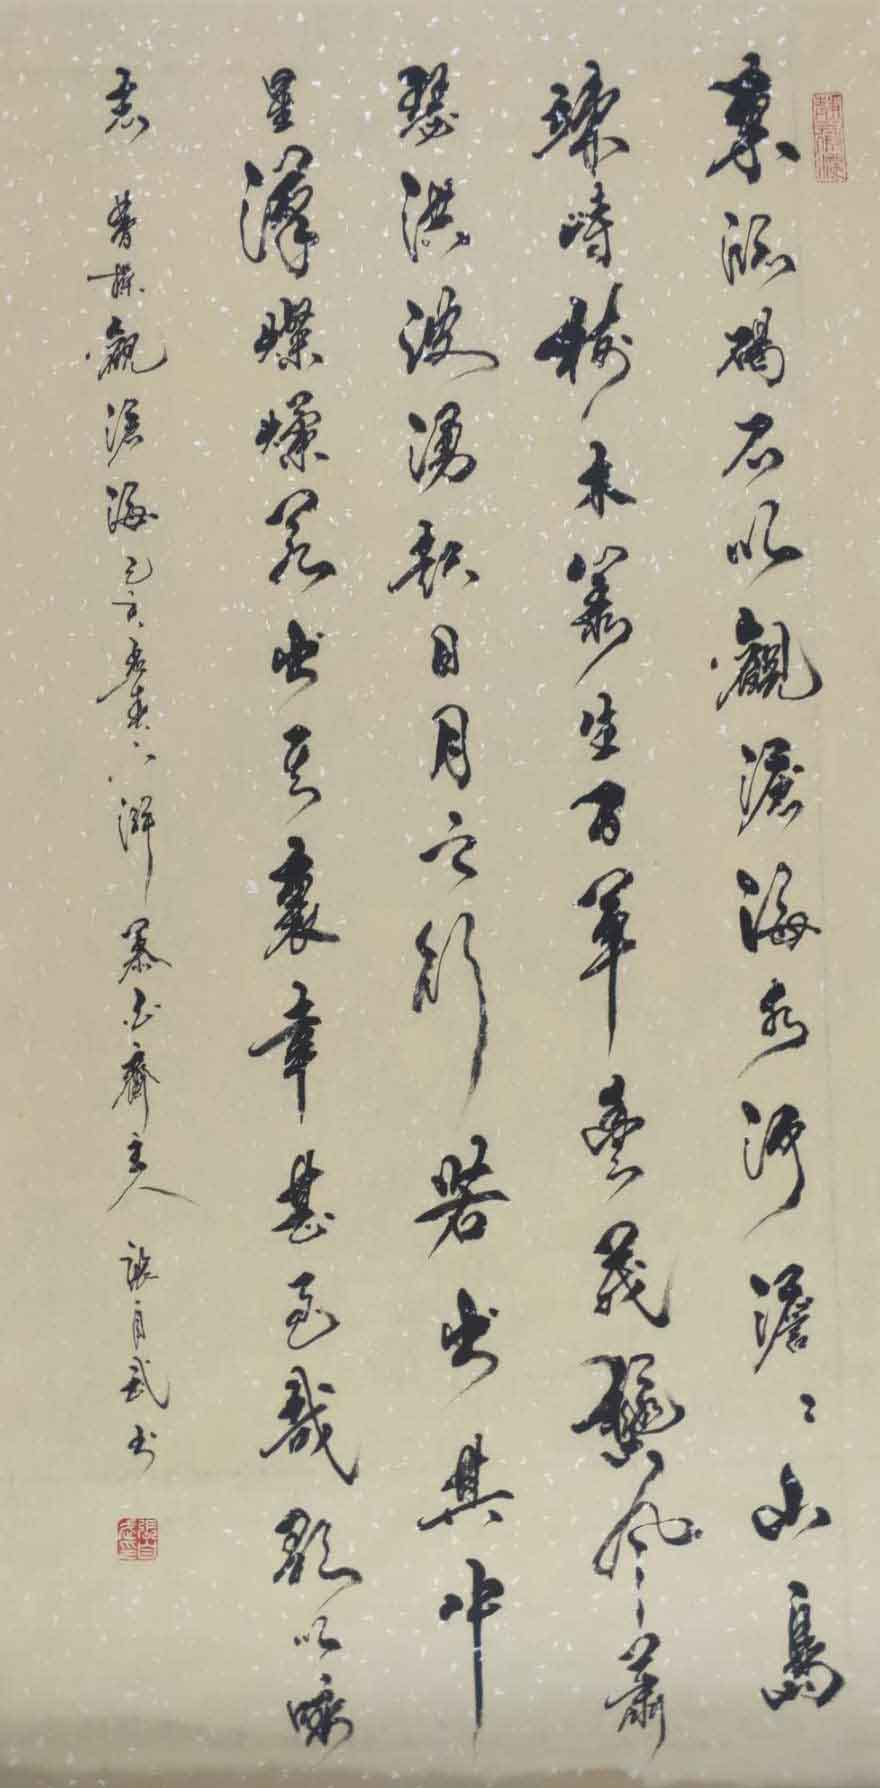 東臨碣石以觀滄海水河澹〻山島
竦峙樹木叢生百草豐茂秋風蕭
瑟洪波湧起日月之行若出其中
星漢燦爛若出其裏幸甚至哉歌以咏
志 曹操觀滄海 己亥春下澣 齋主人 張自武書